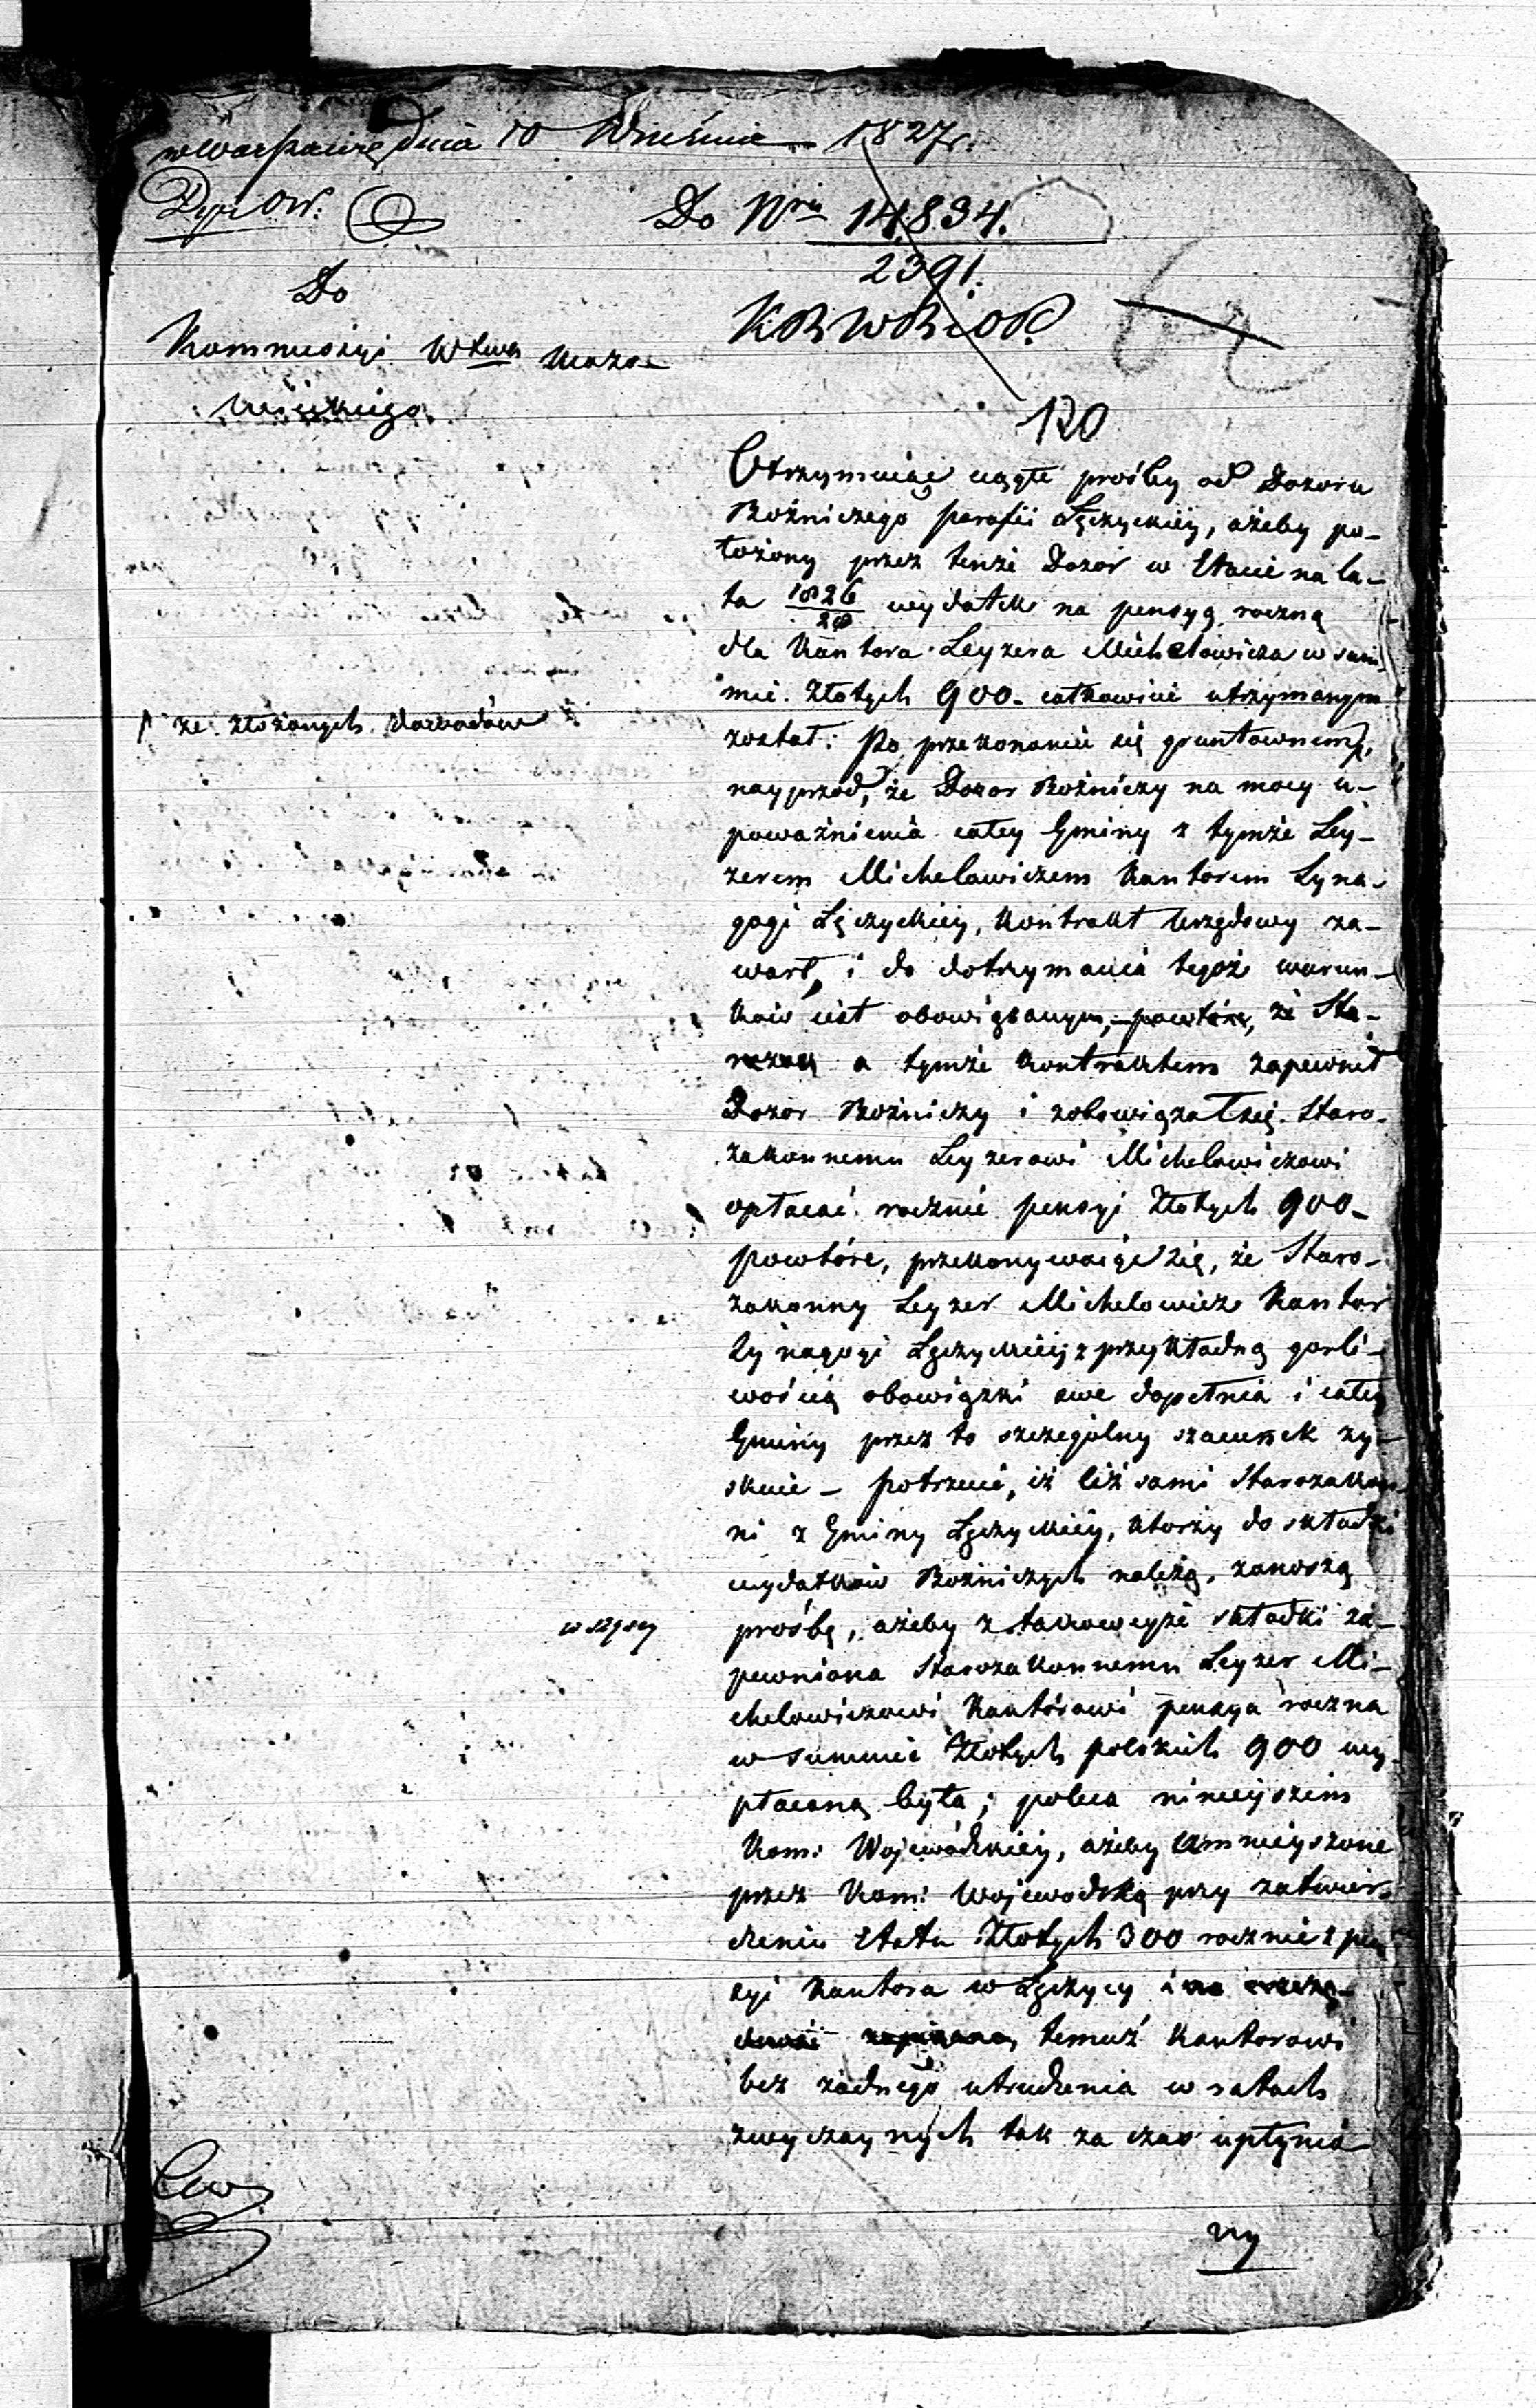 w Warszawie dnia 10 Września 1827 r.
Do Nru 14,834.
2391.
Do
Kommissyi Wtwa Mazo-
wieckiego
K R W R i O P
120
Otrzymując ciągłe prośby od Dozoru
Bożniczego parafii Łęczyckiéy, ażeby po-
łożony przez tenże Dozór w Etacie na la-
ta 1826/28 wydatek na pensyą roczną
dla Kantora Leyzera Michelowicza w sum-
mie Złotych 900 całkowicie utrzymanym
został: Po przekonaniu się gruntownem,
/ ze złożonych dowodów
nayprzód, że Dozor Bożniczy na mocy u-
poważnienia całey Gminy z tymże Ley-
zerem Michelowiczem Kantorem Syna-
gogi Łęczyckiéy, Kontrakt Urzędowy za-
warł, i do dotrzymania tegoż warun-
ków iest obowiązanym, powtóre, że Sta-
a tymże Kontraktem zapewnił
Dozor Bożniczy i zobowiązał się Staro-
zakonnemu Leyzerowi Michelowiczowi
opłacać rocznie pensyi Złotych 900-
powtóre, przekonywaiąc się, że Staro-
zakonny Leyzer Michelowicz Kantor
Synagogi Łęczyckiéy z przykładną gorli-
wością obowiązki swe dopełnia i całey
Gminy przez to szczególny szacunek zy-
skuie - potrzecie, iż ciż sami Starozakon-
ni z Gminy Łęczyckiéy, którzy do składki
wydatków Bożniczych należą, zanoszą
wszyscy
prośbę, ażeby z takoweyże składki za-
pewniona Starozakonnemu Leyzer Mi-
chelowiczowi Kantorowi pensya roczna
w summie Złotych polskich 900 wy-
płaconą była; poleca ninieyszem
Kom: Wojewódzkiéy, ażeby umnieyszone
przez Kom: Wojewodzką przy zatwier-
dzeniu Etatu Złotych 300 rocznie z pen-
syi Kantora w Łęczycy i na
temuż Kantorowi
bez żadnego utrudzenia w ratach
zwyczaynych tak za czas upłynio-
ny